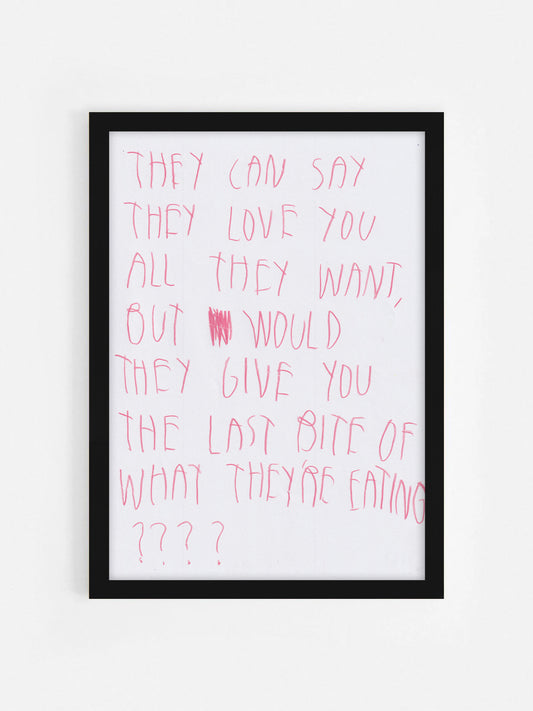 THEY CAN SAY
THEY LOVE YOU
ALL THEY WANT,
BUT WOULD
THEY GIVE YOU
THE LAST BITE OF
WHAT THEY'RE EATING
????